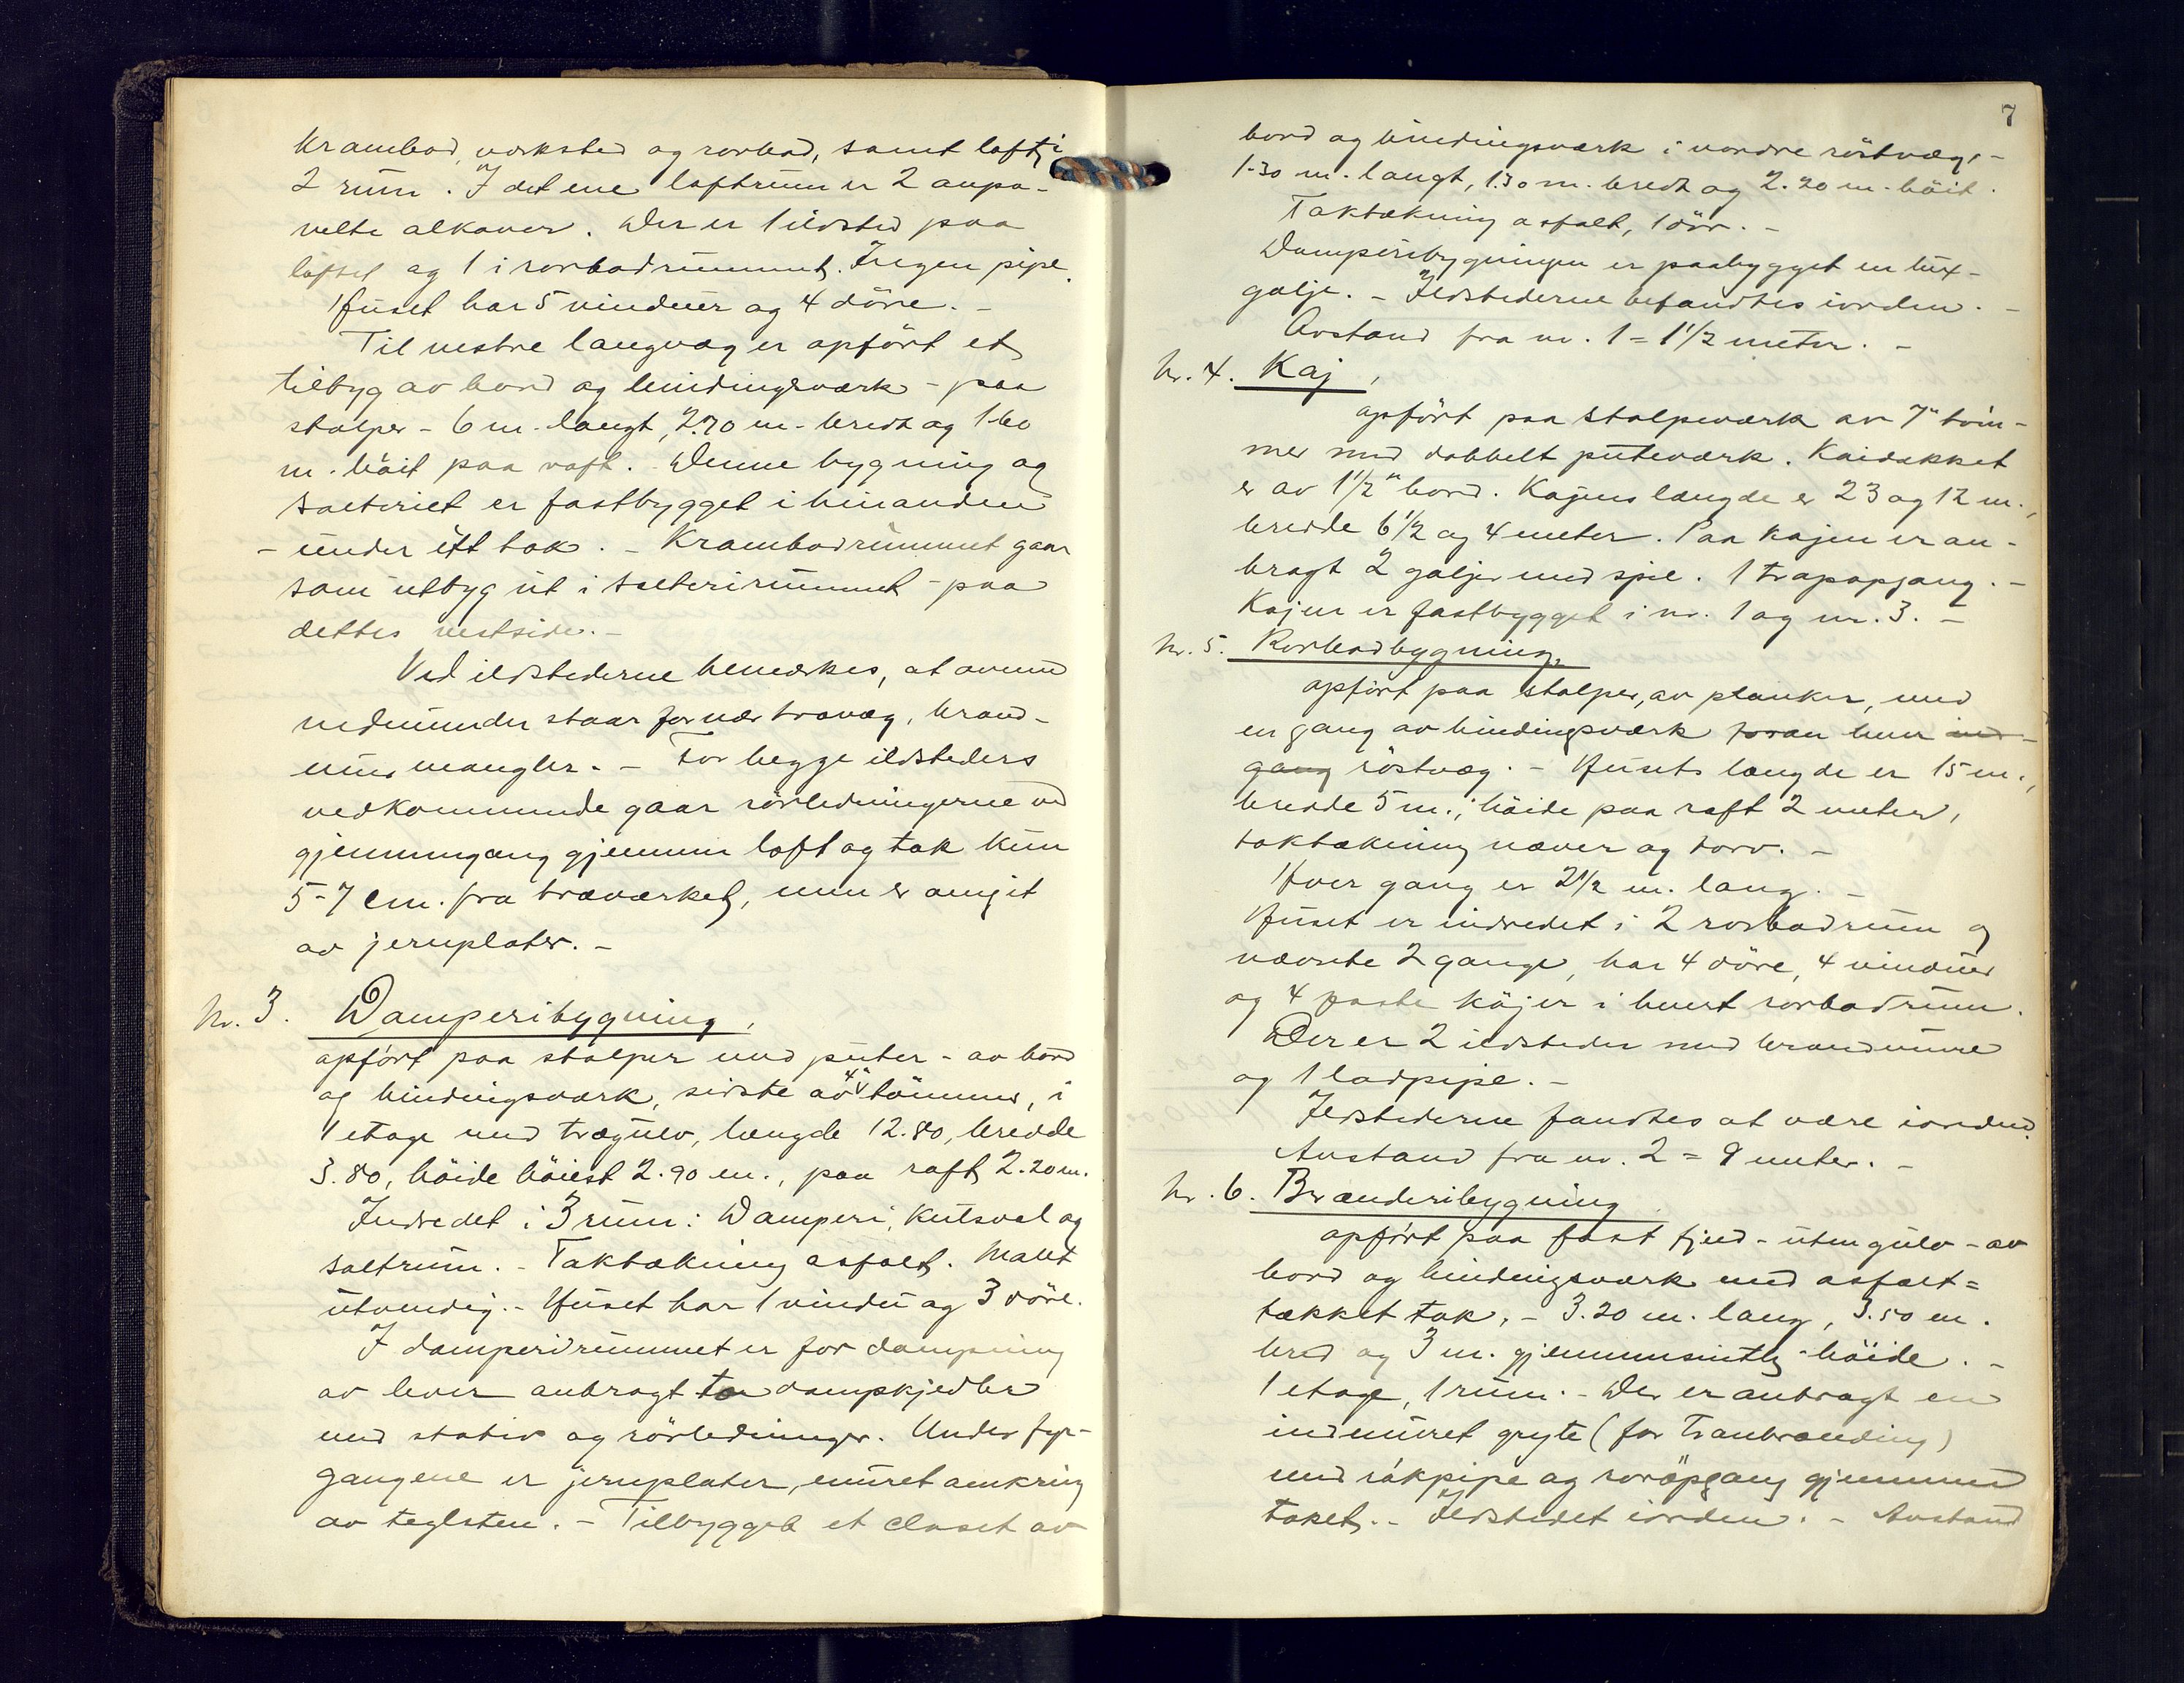 Krambod, verksted og rorbod, samt loft i
2 rum. I det ene loftrum er 2 anpa-
nelte alkover. Der er 1 ildsted paa
loftet og 1 i rorbodrummet. Ingen pipe.
Huset har 5 vinduer og 4 döre. -
Til vestre langvæg er opfört et
tilbyg av bord og bindingsværk - paa
stolper - 6 m. langt, 2.70 m. bredt og 1.60
m. höit paa raft. Denne bygning og
salteriet er fastbygget i hinanden
- under ett tak. - Krambodrummet gaar
som utbyg ut i salterirummet - paa
dettes vestside. -
Ved ildstederne bemerkes, at ovnene
nedunder staar for nær trævæg, brand-
mur mangler. - For begge ildsteders
vedkommende gaar rörledningerne ved
gjennemgang gjennem loft og tak kun
5-7 cm. fra træværket, men er omgit
av jernplater. -
Nr. 3. Damperibygning,
opfört paa stolper med puter - av bord
og bindingsværk, sidste av 4" tömmer, i
1 etage med trægulv, længde 12.80, bredde
3.80, höide höiest 2.90 m., paa raft 2.20 m.
Indredet i 3 rum: Damperi, kulsval og
saltrum. - Taktækning asfalt. Malt
utvendig. - Huset har 1 vindu og 3 döre.
I damperirummet er for dampning
av lever anbragt to dampkjedler
med stativ og rörledninger. Under fyr-
gangene er jernplater, muret omkring
av teglsten. - Tilbygget et closet av
7
bord og bindingsværk i nordre röstvæg, -
1.30 m. langt, 1.30 m. bredt og 2.20 m. höit.
Taktækning asfalt, 1 dör. -
Damperibygningen er paabygget en lux-
galje. - Ildstederne befandtes iorden. -
Avstand fra nr. 1 = 1 1/2 meter. -
Nr. 4. Kaj,
opfört paa stolpeværk av 7" töm-
mer med dobbelt puteværk. Kaidækket
er av 1 1/2" bord. Kajens længde er 23 og 12 m.,
bredde 6 1/2 og 4 meter. Paa kajen er an-
bragt 2 galjer med spil. 1 trapopgang. -
Kajen er fastbygget i nr. 1 og nr. 3. -
Nr. 5. Rorbodbygning,
opfört paa stolper, av planker, med
en gang av bindingsværk foran hver ind-
gang röstvæg. - Husets længde er 15 m.,
bredde 5 m., höide paa raft 2 meter,
taktækning næver og torv. -
Hver gang er 2 1/2 m. lang. -
Huset er indredet i 2 rorbodrum og
nævnte 2 gange, har 4 döre, 4 vinduer
og 4 faste köjer i hvert rorbodrum.
Der er 2 ildsteder med brandmure
og 1 lodpipe. -
Ildstederne fandtes at være iorden.
Avstand fra nr. 2 = 9 meter. -
Nr. 6. Brænderibygning
opfört paa fast fjeld - uten gulv - av
bord og bindingsværk med asfalt=
tækket tak, - 3.20 m. lang, 3.50 m.
bred og 3 m. gjennemsnitlig höide. -
1 etage, 1 rum. - Der er anbragt en
indmuret gryte (for tranbrænding)
med rökpipe og röropgang gjennem
taket. - Ildstedet iorden. - Avstand